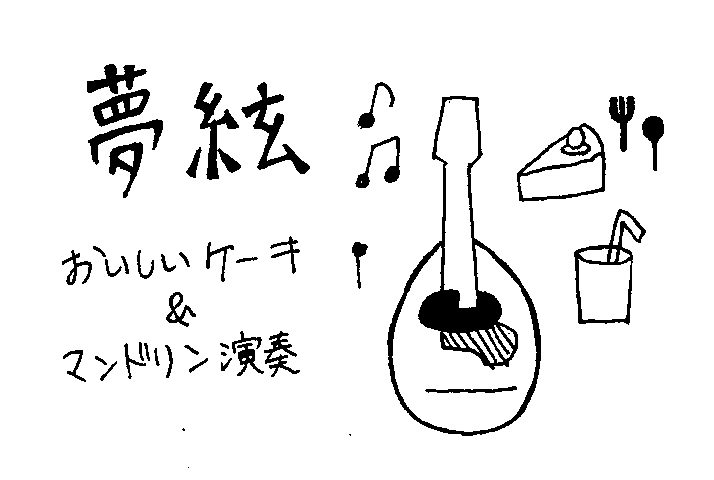 夢絃
おいしいケーキ
&
マンドリン演奏